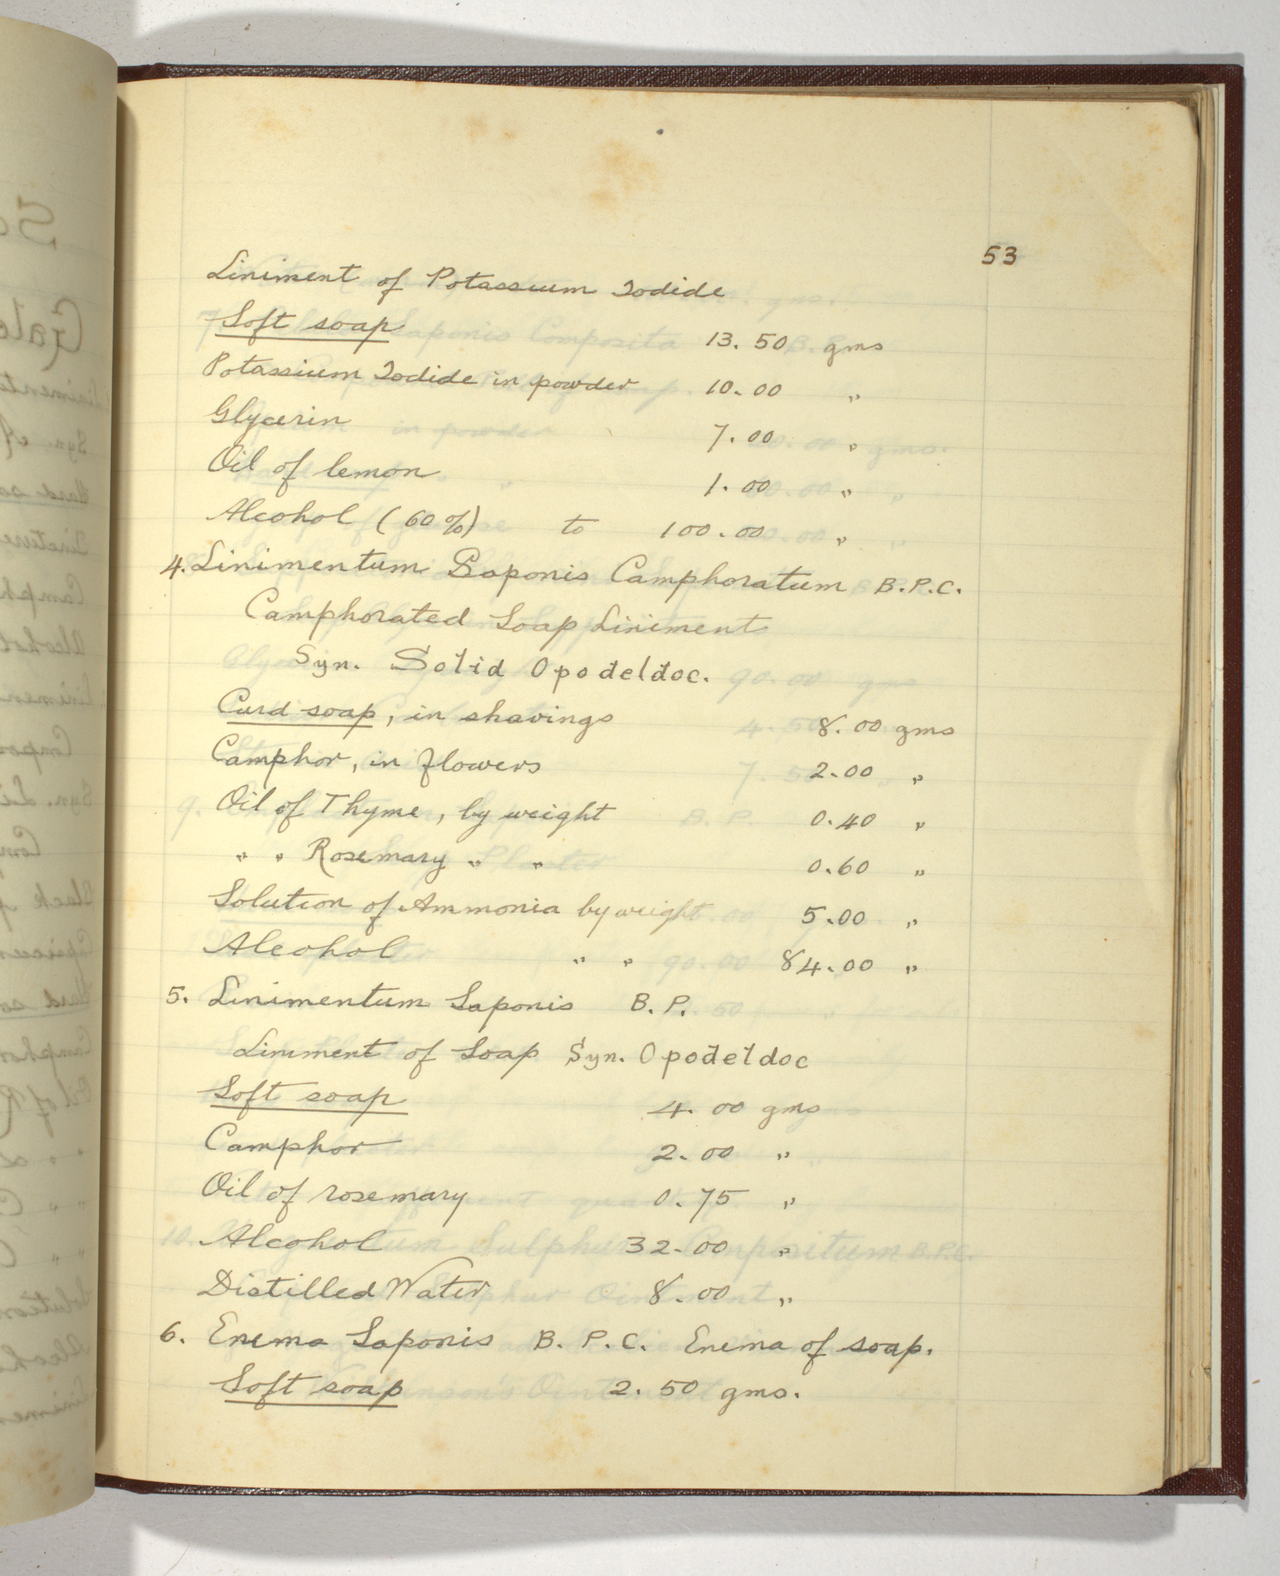 53
Liniment of Potassium Iodide
Soft soap 13.50 gms
Potassium Iodide in powder 10.00 "
Glycerin 7.00 "
Oil of lemon 1.00 "
Alcohol (60%) to 100.00 "
4. Linimentum Saponis Camphoratum B.P.C.
Camphorated Soap Liniment
Syn. Solid Opodeldoc.
Curd soap, in shavings 8.00 gms
Camphor, in flowers 2.00 "
Oil of Thyme, by weight 0.40 "
" " Rosemary " " 0.60 "
Solution of Ammonia by weight 5.00 "
Alcohol " " 84.00 "
5. Linimentum Saponis B.P.
Liniment of Soap Syn. Opodeldoc
Soft soap 4.00 gms
Camphor 2.00 "
Oil of rosemary 0.75 "
Alcohol 32.00 "
Distilled Water 8.00 "
6. Enema Saponis B.P.C. Enema of soap.
Soft soap 2.50 gms.